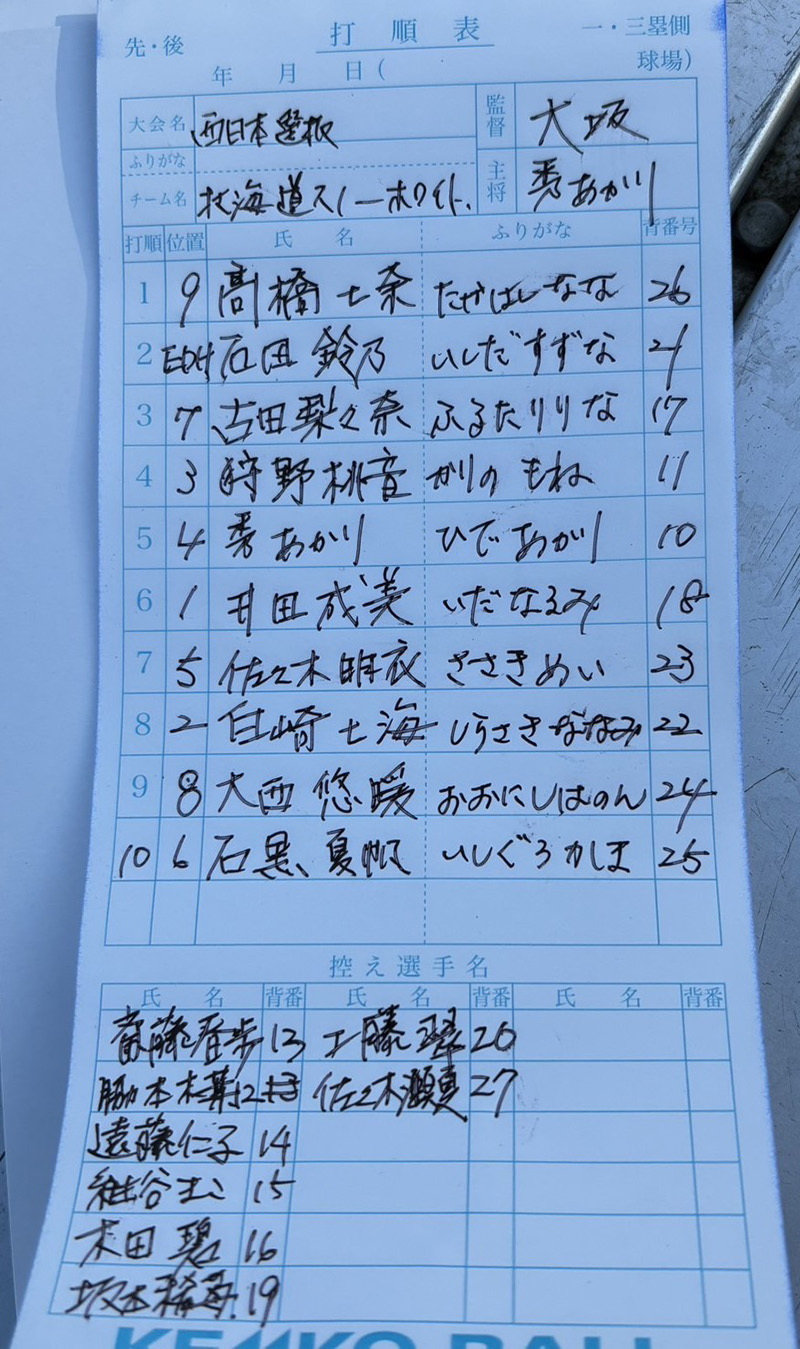 先・後 打順表 一・三塁側
年 月 日( 球場)
大会名 西日本選抜 監督 大坂
ふりがな
チーム名 北海道スノーホワイト. 主将 秀あかり
打順 位置 氏名 ふりがな 背番号
1 9 高橋七奈 たかはしなな 26
2 EDH 石田鈴乃 いしだすずな 21
3 7 古田梨々奈 ふるたりりな 17
4 3 狩野桃音 かりのもね 11
5 4 秀あかり ひであかり 10
6 1 井田成美 いだなるみ 18
7 5 佐々木明衣 ささきめい 23
8 2 白崎七海 しらさきななみ 22
9 8 大西悠暖 おおにしはのん 24
10 6 石黒夏帆 いしぐろかほ 25
控え選手名
氏名 背番 氏名 背番 氏名 背番
齋藤春歩 13 工藤翠 20
脇本 12 佐々木瀬夏 27
遠藤仁子 14
谷 15
木田碧 16
坂本 19
KENKO BALL